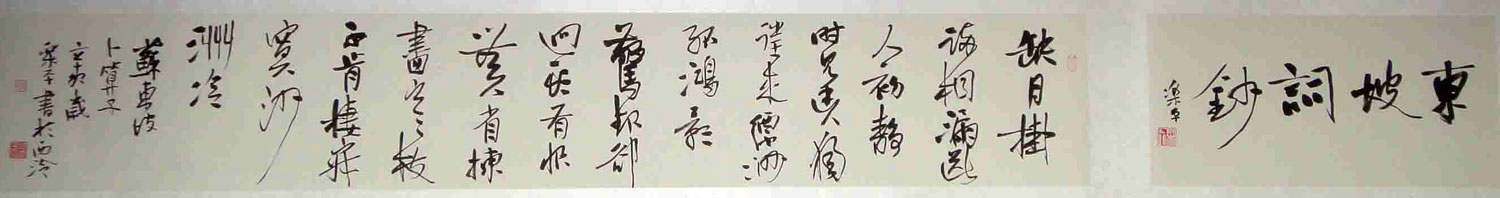 東坡詞鈔
樂平
缺月掛
疏桐漏斷
人初靜
時見幽人獨
往來縹緲
孤鴻影
驚起卻
回頭有恨
無人省揀
盡寒枝
不肯棲寂
寞沙
洲冷
蘇東坡
卜算子
辛卯歲
樂平書於西泠